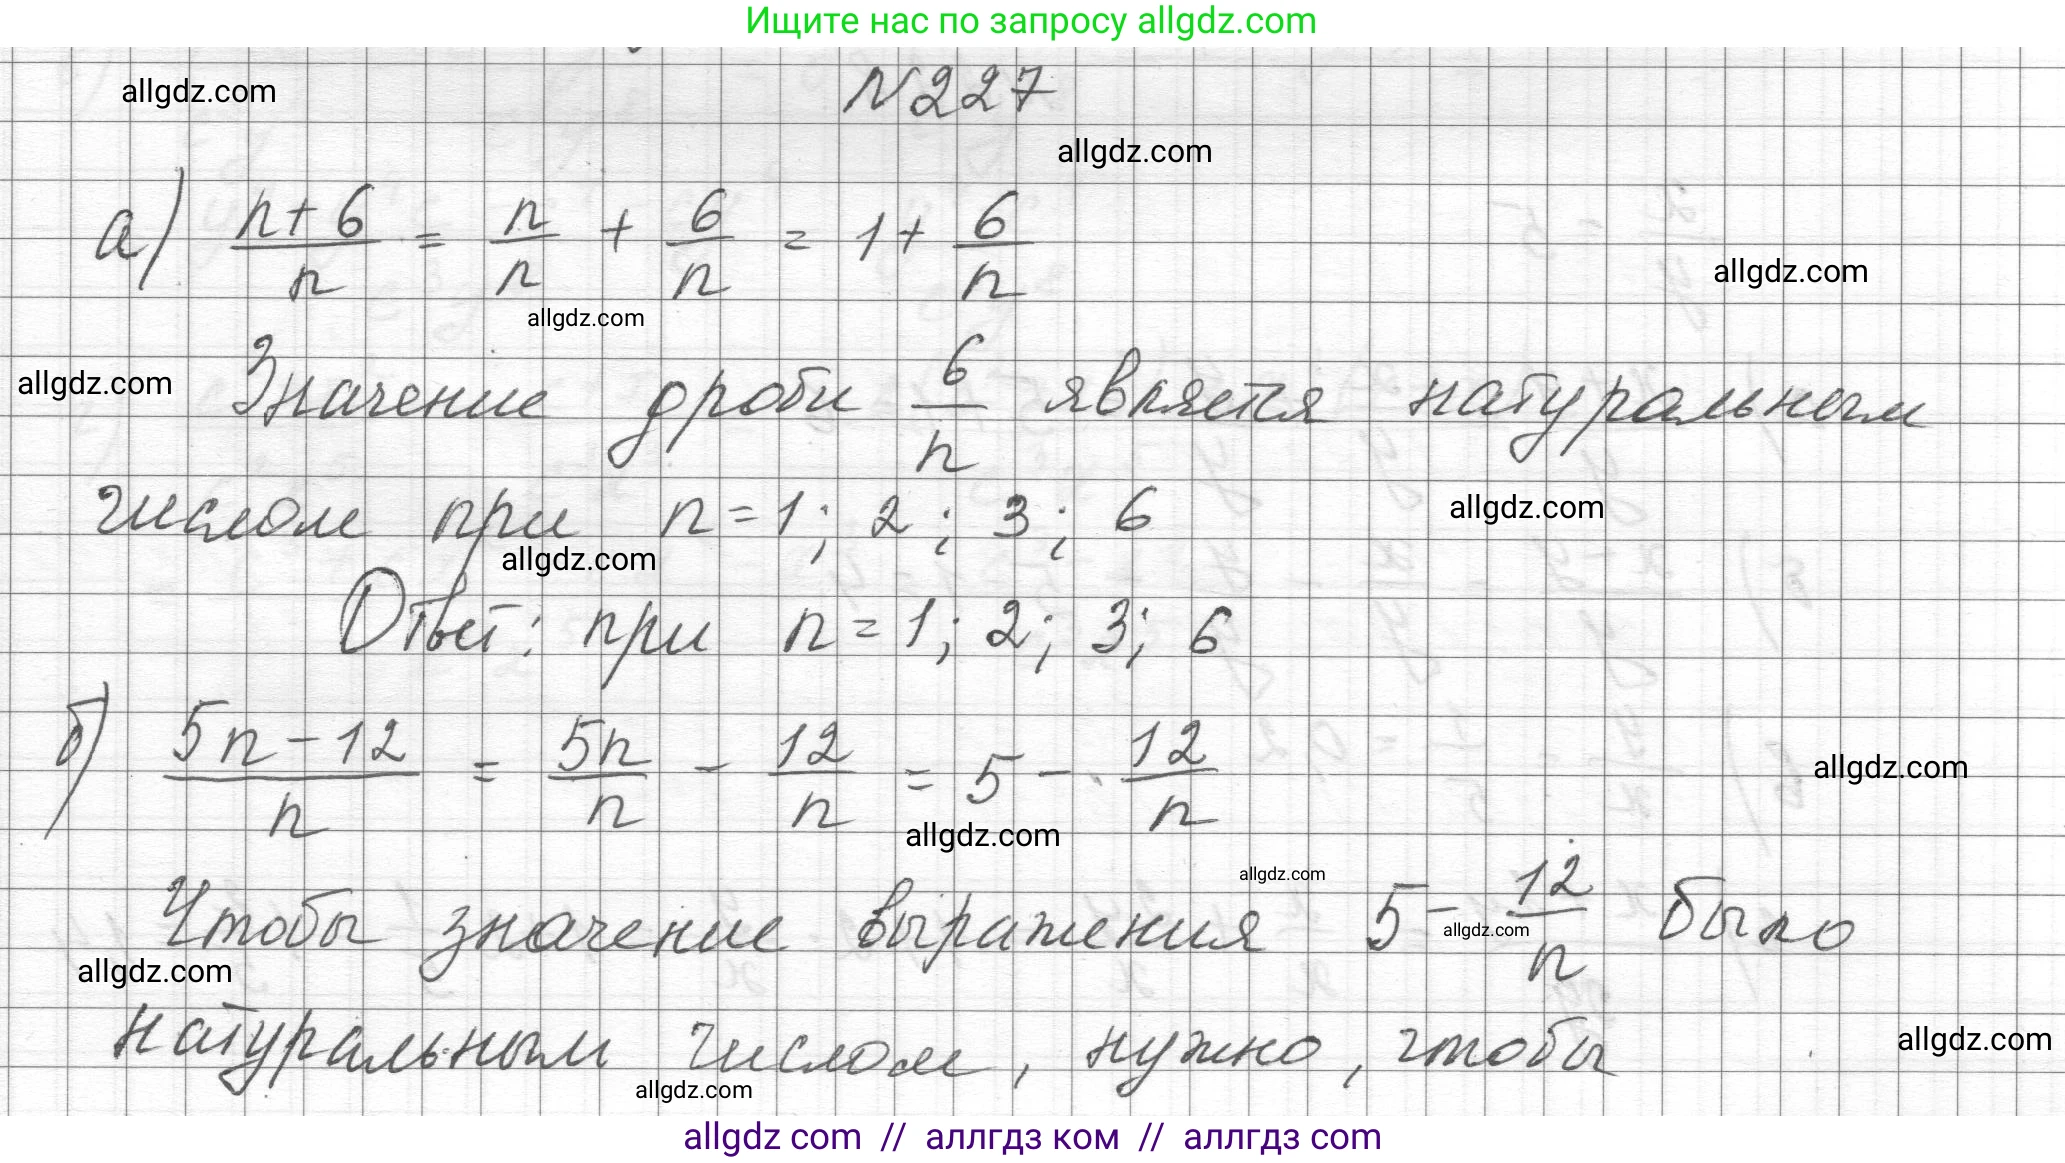 Ищите нас по запросу allgdz.com
allgdz.com
N227
allgdz.com
а) (n+6)/n = n/n + 6/n = 1 + 6/n
allgdz.com
allgdz.com
allgdz.com
Значение дроби 6/n является натуральным
числом при n=1; 2; 3; 6
allgdz.com
allgdz.com
Ответ: при n=1; 2; 3; 6
б) (5n-12)/n = 5n/n - 12/n = 5 - 12/n
allgdz.com
allgdz.com
allgdz.com
Чтобы значение выражения 5 - 12/n было
allgdz.com
allgdz.com
натуральным числом, нужно, чтобы
allgdz.com
allgdz.com
allgdz com // аллгдз ком // аллгдз com